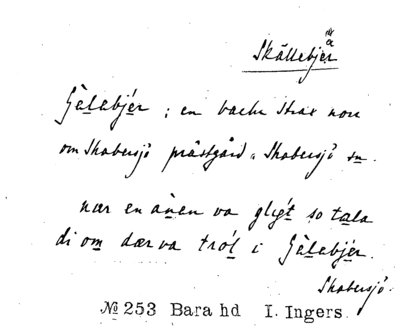 Skällebjer
Gälabjér ; en backe strax norr
om Skabersjö prästgård, Skabersjö sn.
nær en ånen va gligt so tala
di om dær va tról i Gälabjér.
Skabersjö.
№ 253 Bara hd I. Ingers.